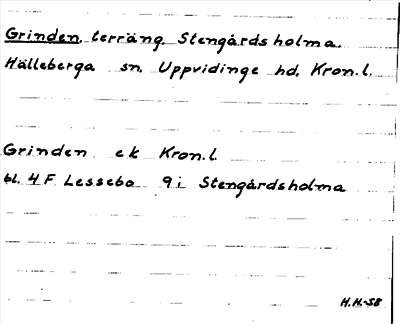 Grinden, terräng, Stengårdsholma.
Hälleberga sn. Uppvidinge hd. Kron.l.
Grinden ek Kron.l.
bl. 4F Lessebo 9i Stengårdsholma
H.H.-58